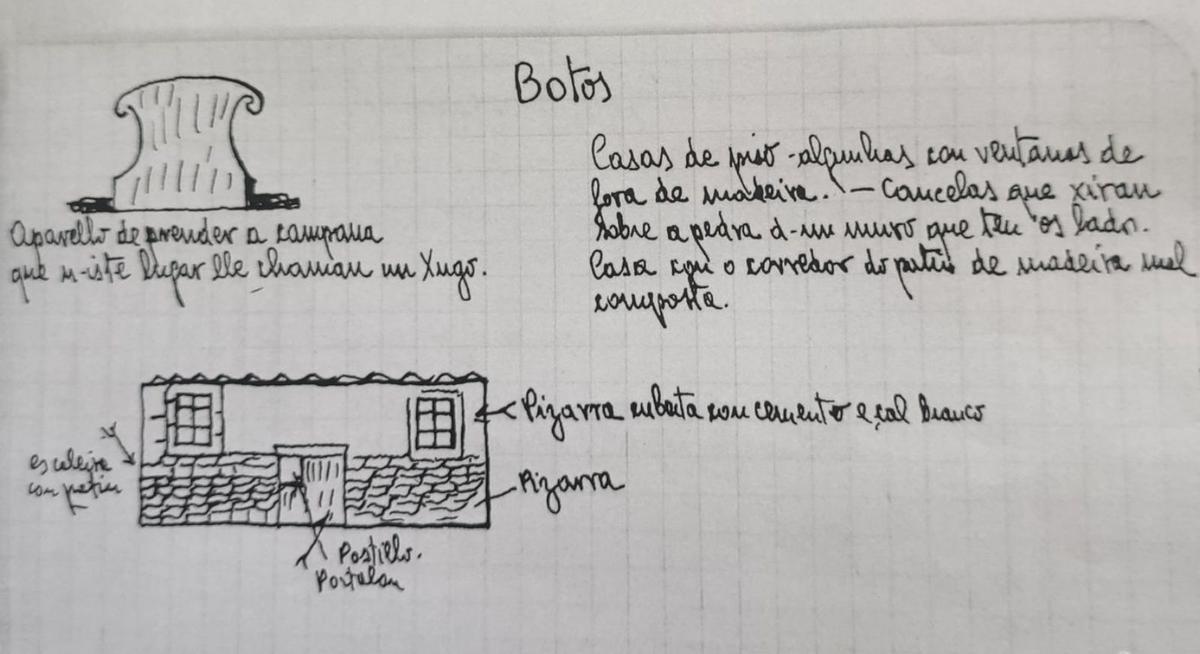 Botos
Casas de piso - algunhas con ventanas de
fora de madeira. - Cancelas que xiran
sobre a pedra d-un muro que ten os lado.
Casa con o corredor do patin de madeira mal
composta.
Aparello de prender a campana
que n-iste lugar lle chaman un Xugo.
Pizarra cuberta con cemento e cal branco
escaleira
con patin
Pizarra
Postillo.
Portalon